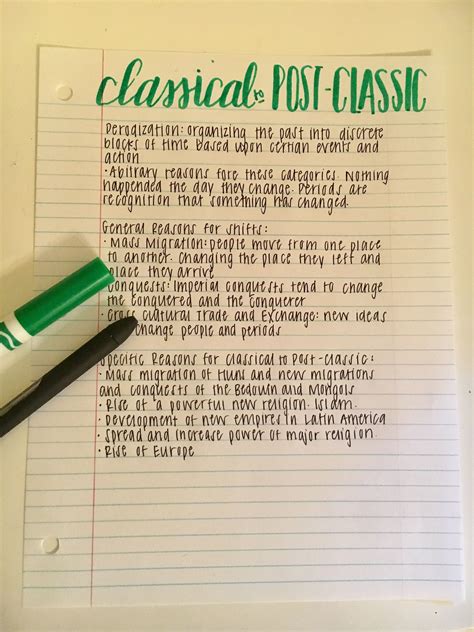 classical to POST-CLASSIC
Derodization: organizing the past into discrete
blocks of time based upon certian events and
action
· Abitrary reasons fore these categories. Nothing
happened the day they change. Periods are
recognition that something has changed.
General Reasons for shifts:
· Mass Migration: people move from one place
to another. Changing the place they left and
place they arrive
Conquests: Imperial conquests tend to change
the conquered and the conquerer
· Cross Cultural Trade and Exchange: new ideas
change people and periods
Specific Reasons for classical to Post-classic:
· Mass migration of Huns and new migrations
and conquests of the Bedouin and Mongols
· Rise of a powerful new religion. Islam.
· Development of new empires in Latin America
· Spread and increase power of major religion.
· Rise of Europe